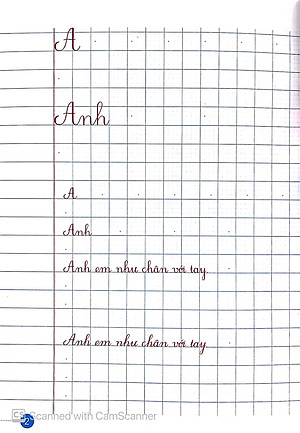 A
Anh
A
Anh
Anh em như chân với tay.
Anh em như chân với tay.
2
CS Scanned with CamScanner